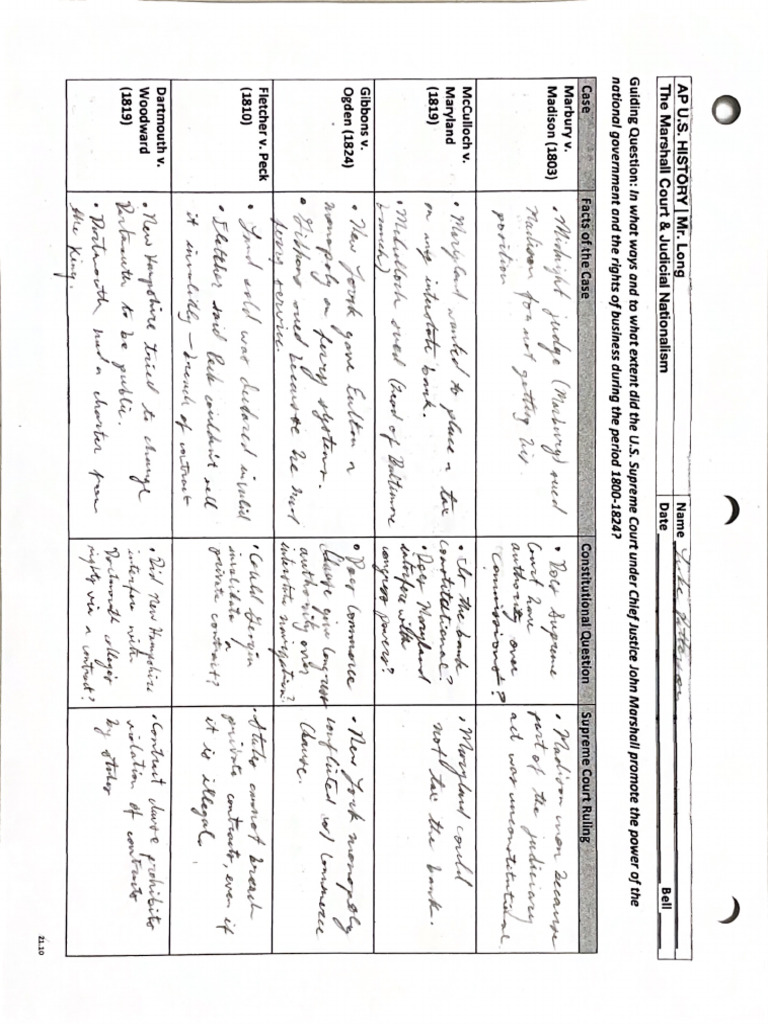 AP U.S. HISTORY | Mr. Long
Name
The Marshall Court & Judicial Nationalism
Date
Bell
Guiding Question: In what ways and to what extent did the U.S. Supreme Court under Chief Justice John Marshall promote the power of the
national government and the rights of business during the period 1800-1824?
Case
Facts of the Case
Constitutional Question
Supreme Court Ruling
Marbury v.
Madison (1803)
• Midnight judge (Marbury) sued
Madison for not getting his
position
• Does Supreme
Court have
authority over
commissions?
• Madison won because
part of the judiciary
act was unconstitutional.
McCulloch v.
Maryland
(1819)
• Maryland wanted to place a tax
on any interstate bank.
• McCulloch sued (head of Baltimore
branch)
• Is the bank
constitutional?
• Does Maryland
interfere with
congress powers?
• Maryland could
not tax the bank.
Gibbons v.
Ogden (1824)
• New York gave Fulton a
monopoly on ferry systems.
• Gibbons sued because he had
ferry service.
• Does commerce
clause give congress
authority over
interstate navigation?
• New York monopoly
conflicted w/ commerce
clause.
Fletcher v. Peck
(1810)
• Land sold was declared invalid
• Fletcher said Peck couldn't sell
it invalidly - breach of contract
• Could Georgia
invalidate a
private contract?
• States cannot breach
private contracts, even if
it is illegal.
Dartmouth v.
Woodward
(1819)
• New Hampshire tried to change
Dartmouth to be public.
• Dartmouth had a charter from
the King.
• Did New Hampshire
interfere with
Dartmouth college's
rights via a contract?
• Contract clause prohibits
violation of contracts
by states
21.10